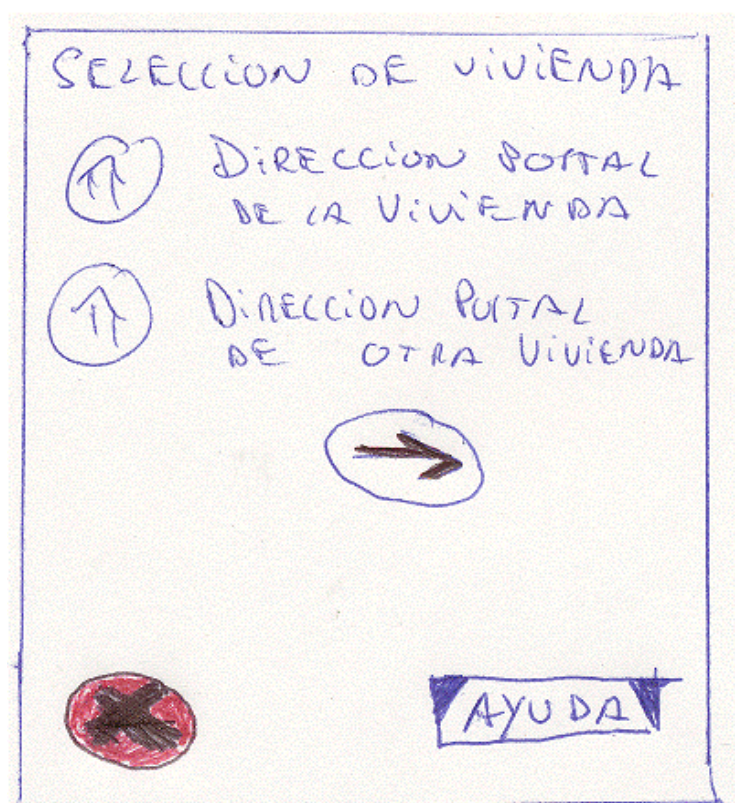 SELECCION DE VIVIENDA
DIRECCION POSTAL
DE LA VIVIENDA
DIRECCION POSTAL
DE OTRA VIVIENDA
AYUDA